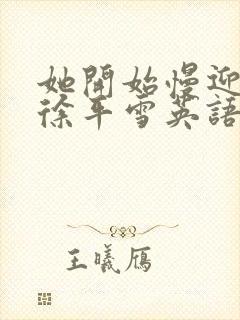 她開始慢迎
徐平雪英語
王曦雁